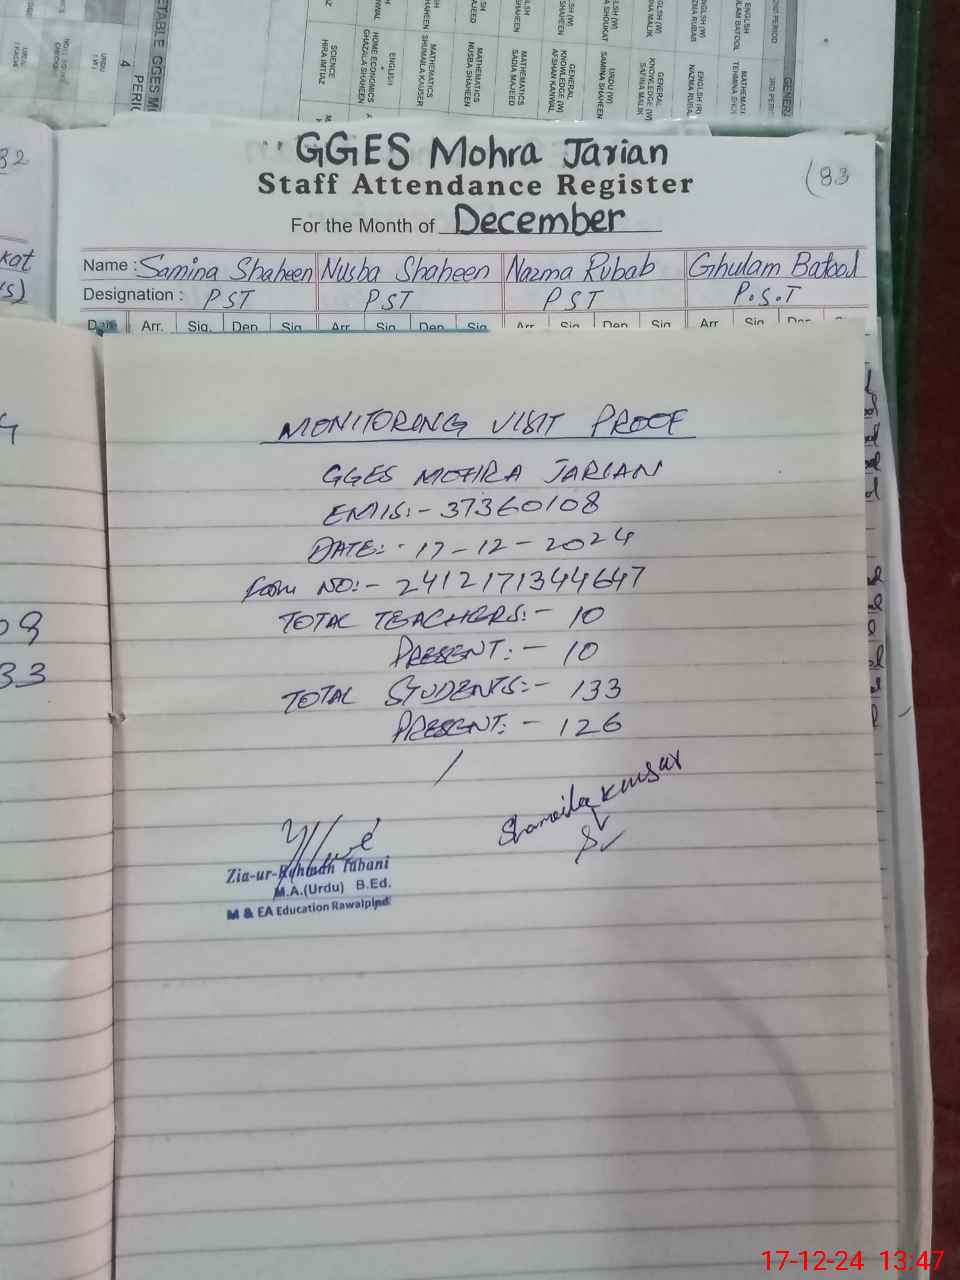 GGES Mohra Jarian
Staff Attendance Register
(83
For the Month of December
Name : Samina Shaheen Nusba Shaheen Nazma Rubab Ghulam Batool
Designation : PST PST PST P.S.T
Date Arr. Sig. Dep. Sig. Arr. Sig. Dep. Sig. Arr. Sig. Dep. Sig. Arr. Sig. Dep.
MONITORING VISIT PROOF
GGES MOHRA JARIAN
EMIS:- 37360108
DATE:- 17-12-2024
Form NO:- 2412171344647
TOTAL TEACHERS:- 10
PRESENT:- 10
TOTAL STUDENTS:- 133
PRESENT:- 126
Shameila Kausar
Zia-ur-Rehman Tabani
M.A.(Urdu) B.Ed.
M & EA Education Rawalpindi
33
17-12-24 13:47
ENGLISH
HOME ECONOMICS
GHAZALA SHAHEEN
MATHEMATICS
SHUMAILA KAUSER
MATHEMATICS
NUSBA SHAHEEN
MATHEMATICS
SADIA MAJEED
GENERAL
KNOWLEDGE (W)
AFSHAN KANWAL
URDU (W)
SAMINA SHAHEEN
GENERAL
KNOWLEDGE (W)
SAFINA MALIK